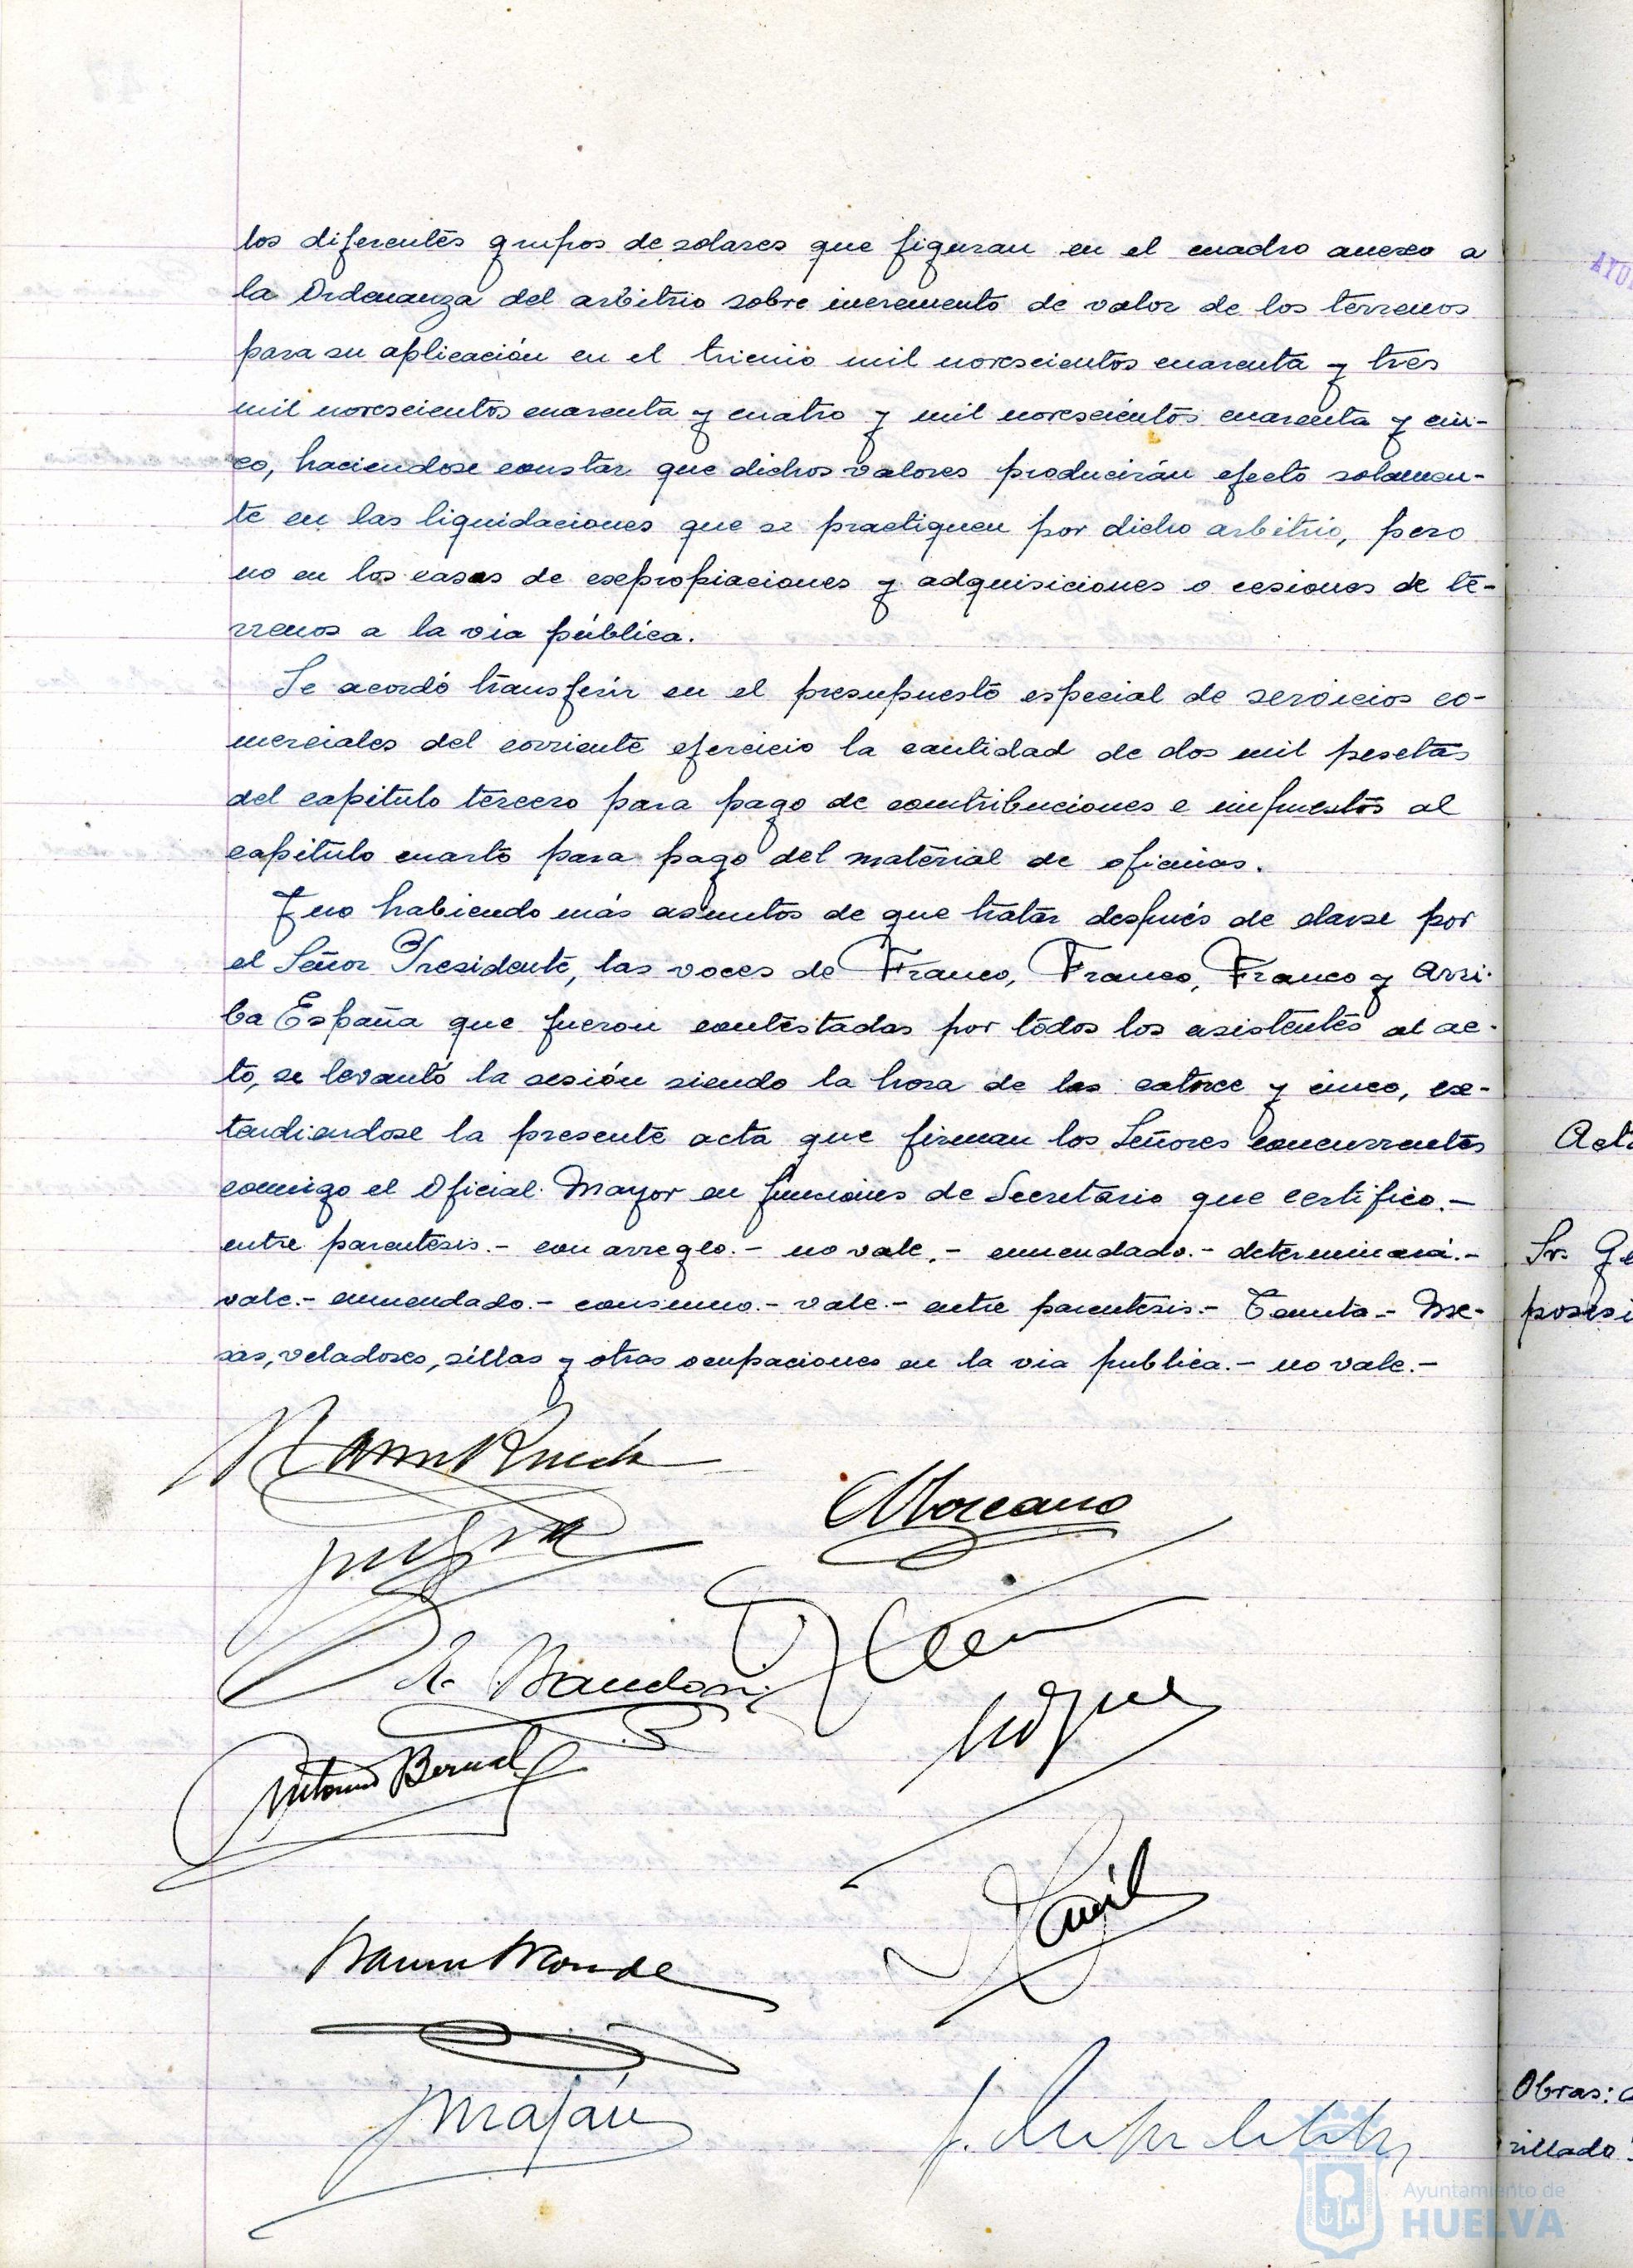 los diferentes grupos de solares que figuran en el cuadro anexo a
la Ordenanza del arbitrio sobre incremento de valor de los terrenos
para su aplicación en el trienio mil novescientos cuarenta y tres
mil novescientos cuarenta y cuatro y mil novescientos cuarenta y cin-
co, haciendose constar que dichos valores producirán efecto solamen-
te en las liquidaciones que se practiquen por dicho arbitrio, pero
no en los casos de expropiaciones y adquisiciones o cesiones de te-
rrenos a la via pública.
Se acordó transferir en el presupuesto especial de servicios co-
merciales del corriente ejercicio la cantidad de dos mil pesetas
del capitulo tercero para pago de contribuciones e impuestos al
capitulo cuarto para pago del material de oficinas.
Y no habiendo más asuntos de que tratar después de darse por
el Señor Presidente, las voces de Franco, Franco, Franco y Arri-
ba España que fueron contestadas por todos los asistentes al ac-
to, se levantó la sesión siendo la hora de las catorce y cinco, ex-
tendiendose la presente acta que firman los Señores concurrentes
conmigo el Oficial Mayor en funciones de Secretario que certifico.-
entre parentesis.- con arreglo.- no vale.- enmendado.- determinará.-
vale.- enmendado.- consumo.- vale.- entre parentesis.- Tenuta.- Me-
sas, veladores, sillas y otras ocupaciones en la via publica.- no vale.-
Moreano
Antonio Bernal
AYU
Acta
Sr. Ge
posesi
Obras:
rillado
Ayuntamiento de
HUELVA